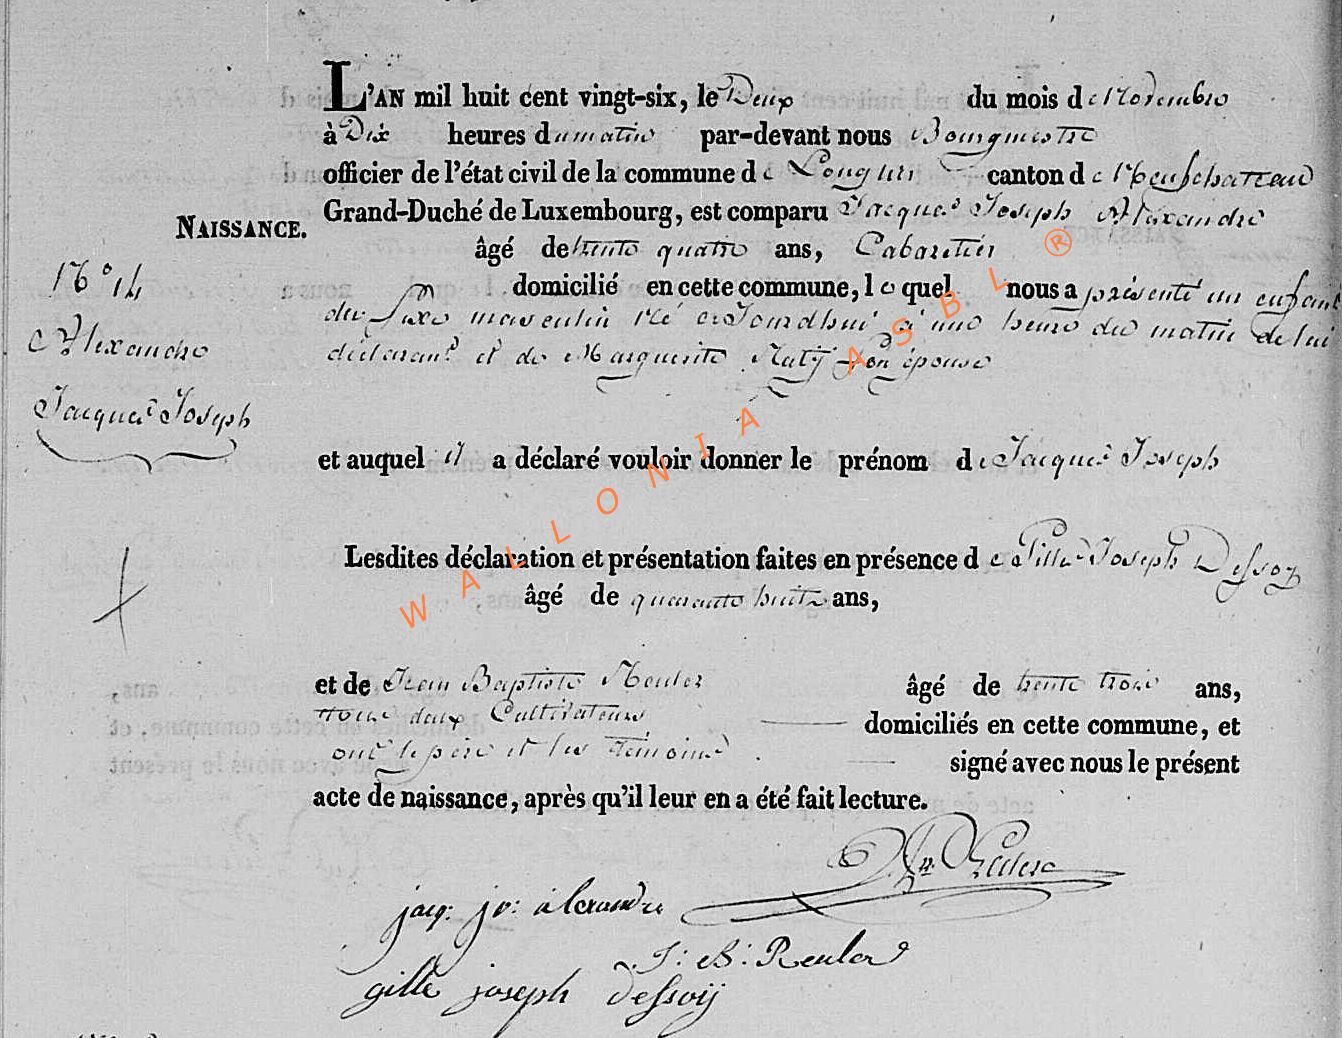 L'AN mil huit cent vingt-six, le Deux du mois de Novembre
à Dix heures du matin par-devant nous Bourgmestre
officier de l'état civil de la commune de Longlier canton de Neufchateau
Grand-Duché de Luxembourg, est comparu Jacques Joseph Alexandre
NAISSANCE.
âgé de trente quatre ans, Cabaretier
N° 14
domicilié en cette commune, lequel nous a présenté un enfant
du sexe masculin né ce Jourd'hui à une heure du matin de lui
Alexandre
déclarant et de Marguerite son épouse
Jacques Joseph
et auquel il a déclaré vouloir donner le prénom de Jacques Joseph
Lesdites déclaration et présentation faites en présence de Gille Joseph Dessoy
âgé de quarante huit ans,
et de Jean Baptiste Reuler âgé de trente trois ans,
tous deux Cultivateurs domiciliés en cette commune, et
ont le père et les Témoins signé avec nous le présent
acte de naissance, après qu'il leur en a été fait lecture.
jacq: jo: alexandre
J: B: Reuler
gille joseph dessoij
WALLONIA ASBL ®